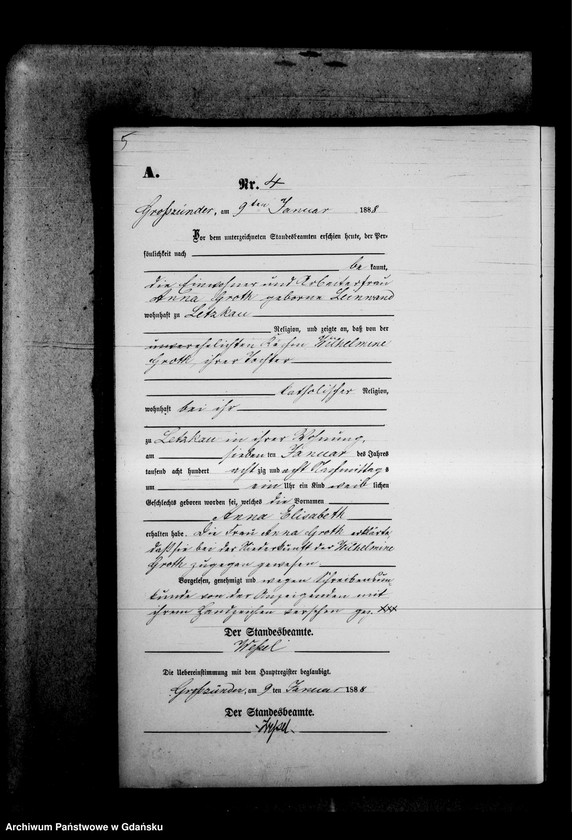 5
A.
Nr. 4
Großzünder, am 9ten Januar 1888
Vor dem unterzeichneten Standesbeamten erschien heute, der Per-
sönlichkeit nach
be kannt,
die Einwohner und Arbeiterfrau
Anna Groth geborne Leinwand
wohnhaft zu Letzkau
Religion, und zeigte an, daß von der
unverehelichten Wilhelmine
Groth, ihrer Tochter
katholischer Religion,
wohnhaft bei ihr
zu Letzkau in ihrer Wohnung,
am sieben ten Januar des Jahres
tausend acht hundert acht zig und acht Nachmittags
um ein Uhr ein Kind weib lichen
Geschlechts geboren worden sei, welches die Vornamen
Anna Elisabeth
erhalten habe. Die Frau Anna Groth erklärte,
daß sie bei der Niederkunft der Wilhelmine
Groth zugegen gewesen
Vorgelesen, genehmigt und wegen Schreibensun-
kunde von der Anzeigenden mit
ihrem Handzeichen versehen gez. xxx
Der Standesbeamte.
Wessel
Die Uebereinstimmung mit dem Hauptregister beglaubigt.
Großzünder, am 9 ten Januar 1888
Der Standesbeamte.
Wessel
Archiwum Państwowe w Gdańsku